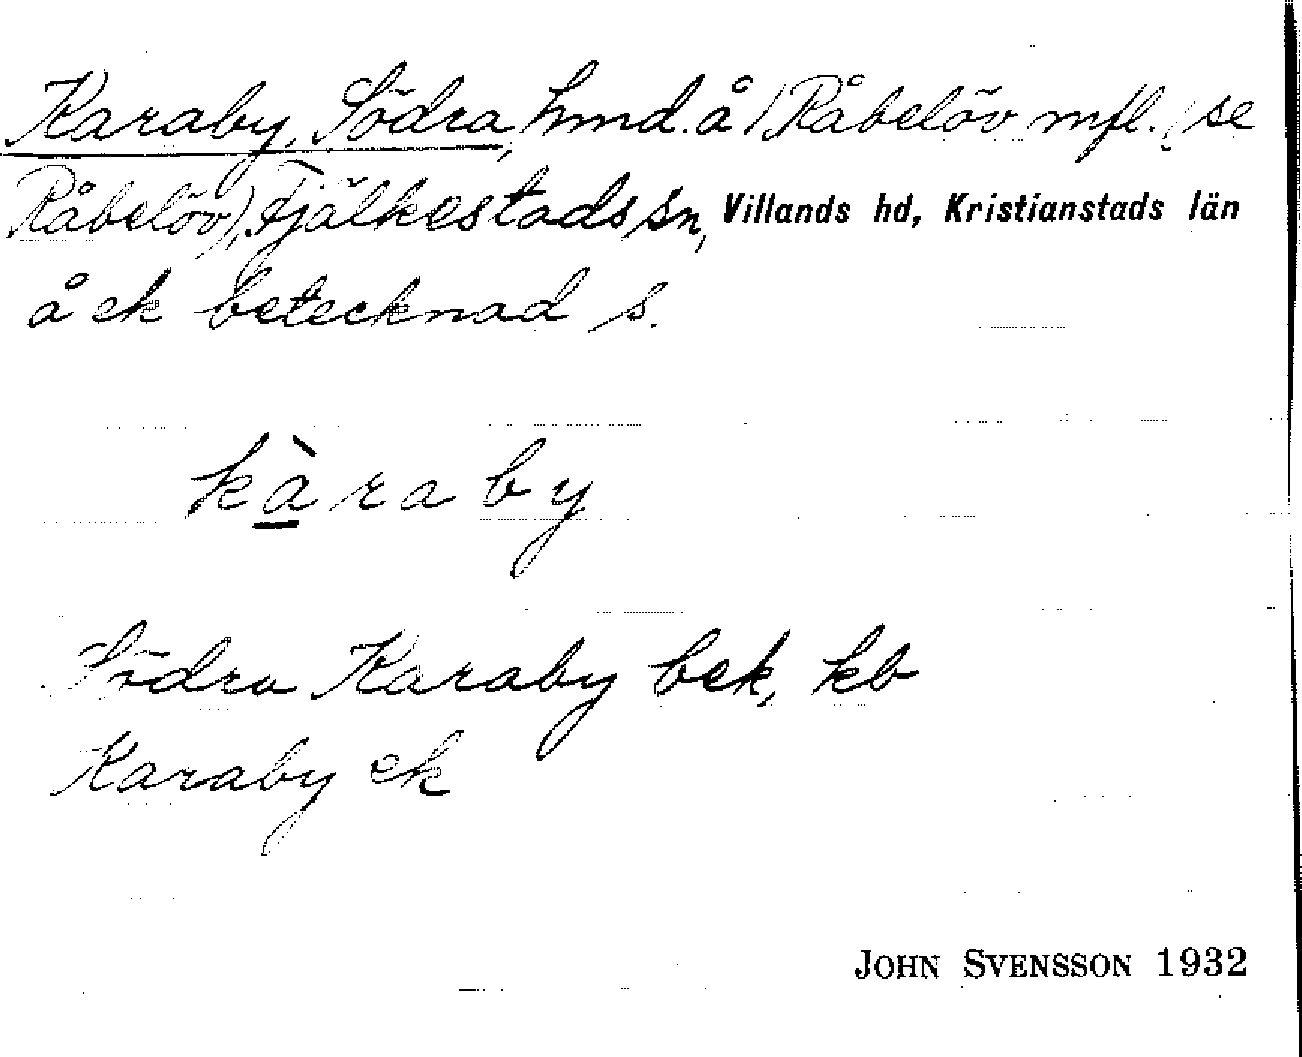 Karaby, Södra, hmd. å 1 Råbelöv mfl. (se
Råbelöv), Fjälkestads sn, Villands hd, Kristianstads län
å ek betecknad s.
kàraby
Södra Karaby bek, kb
Karaby ek
JOHN SVENSSON 1932